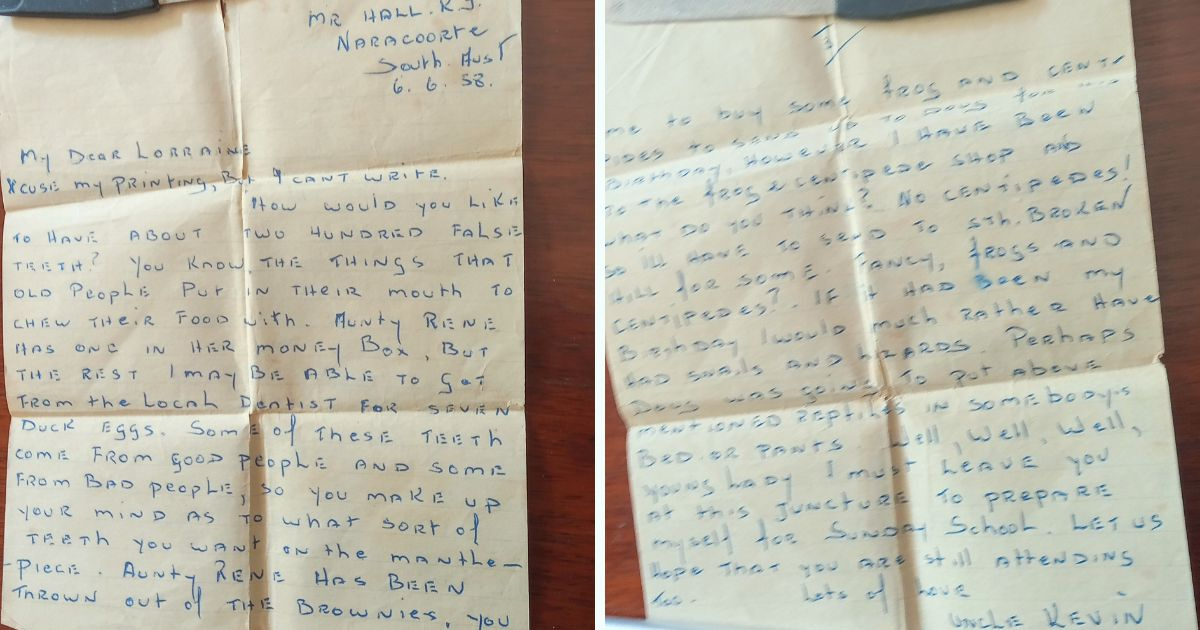 MR HALL. K.J.
NARACOORTE
South. Aust
6. 6. 58.
My Dear LORRAINE
Xcuse my PRINTING, But I CANT WRITE.
How would you LIKE
TO HAVE ABOUT TWO HUNDRED FALSE
TEETH? You Know, THE THINGS THAT
OLD People Put IN THEIR mouth TO
CHEW THEIR FOOD with. AUNTY RENE
HAS ONE IN HER MONEY BOX, BUT
THE REST I MAY BE ABLE TO GET
FROM the LOCAL DENTIST FOR SEVEN
DUCK EGGS. SOME of These TEETH
COME FROM GOOD PEOPLE AND SOME
FROM BAD people, so you MAKE UP
YOUR MIND AS TO what SORT of
TEETH you WANT on the manthe-
-Piece. AUNTY RENE HAS BEEN
THROWN OUT of THE BROWNIES, you
3/
me to buy some frog AND CENTI
PIDES to SEND UP TO DOUG for
BIRTHDAY, HOWEVER I HAVE BEEN
TO THE frog & CENTIPEDE SHOP AND
WHAT DO YOU THINK? NO CENTIPEDES!
SO Ill HAVE TO SEND TO STH. BROKEN
HILL for SOME. FANCY, FROGS AND
CENTIPEDES? IF it HAD BEEN my
BIRTHDAY I would much RATHER HAVE
HAD SNAILS AND LIZARDS. PERHAPS
DOUG WAS GOING TO PUT ABOVE
MENTIONED REPTILES IN SOMEBODY'S
BED.OR PANTS. Well, Well, Well,
YOUNG LADY I must LEAVE YOU
AT this JUNCTURE TO PREPARE
myself for SUNDAY SCHOOL. LET US
HOPE THAT YOU ARE still ATTENDING
Too. Lots of Love
UNCLE KEVIN